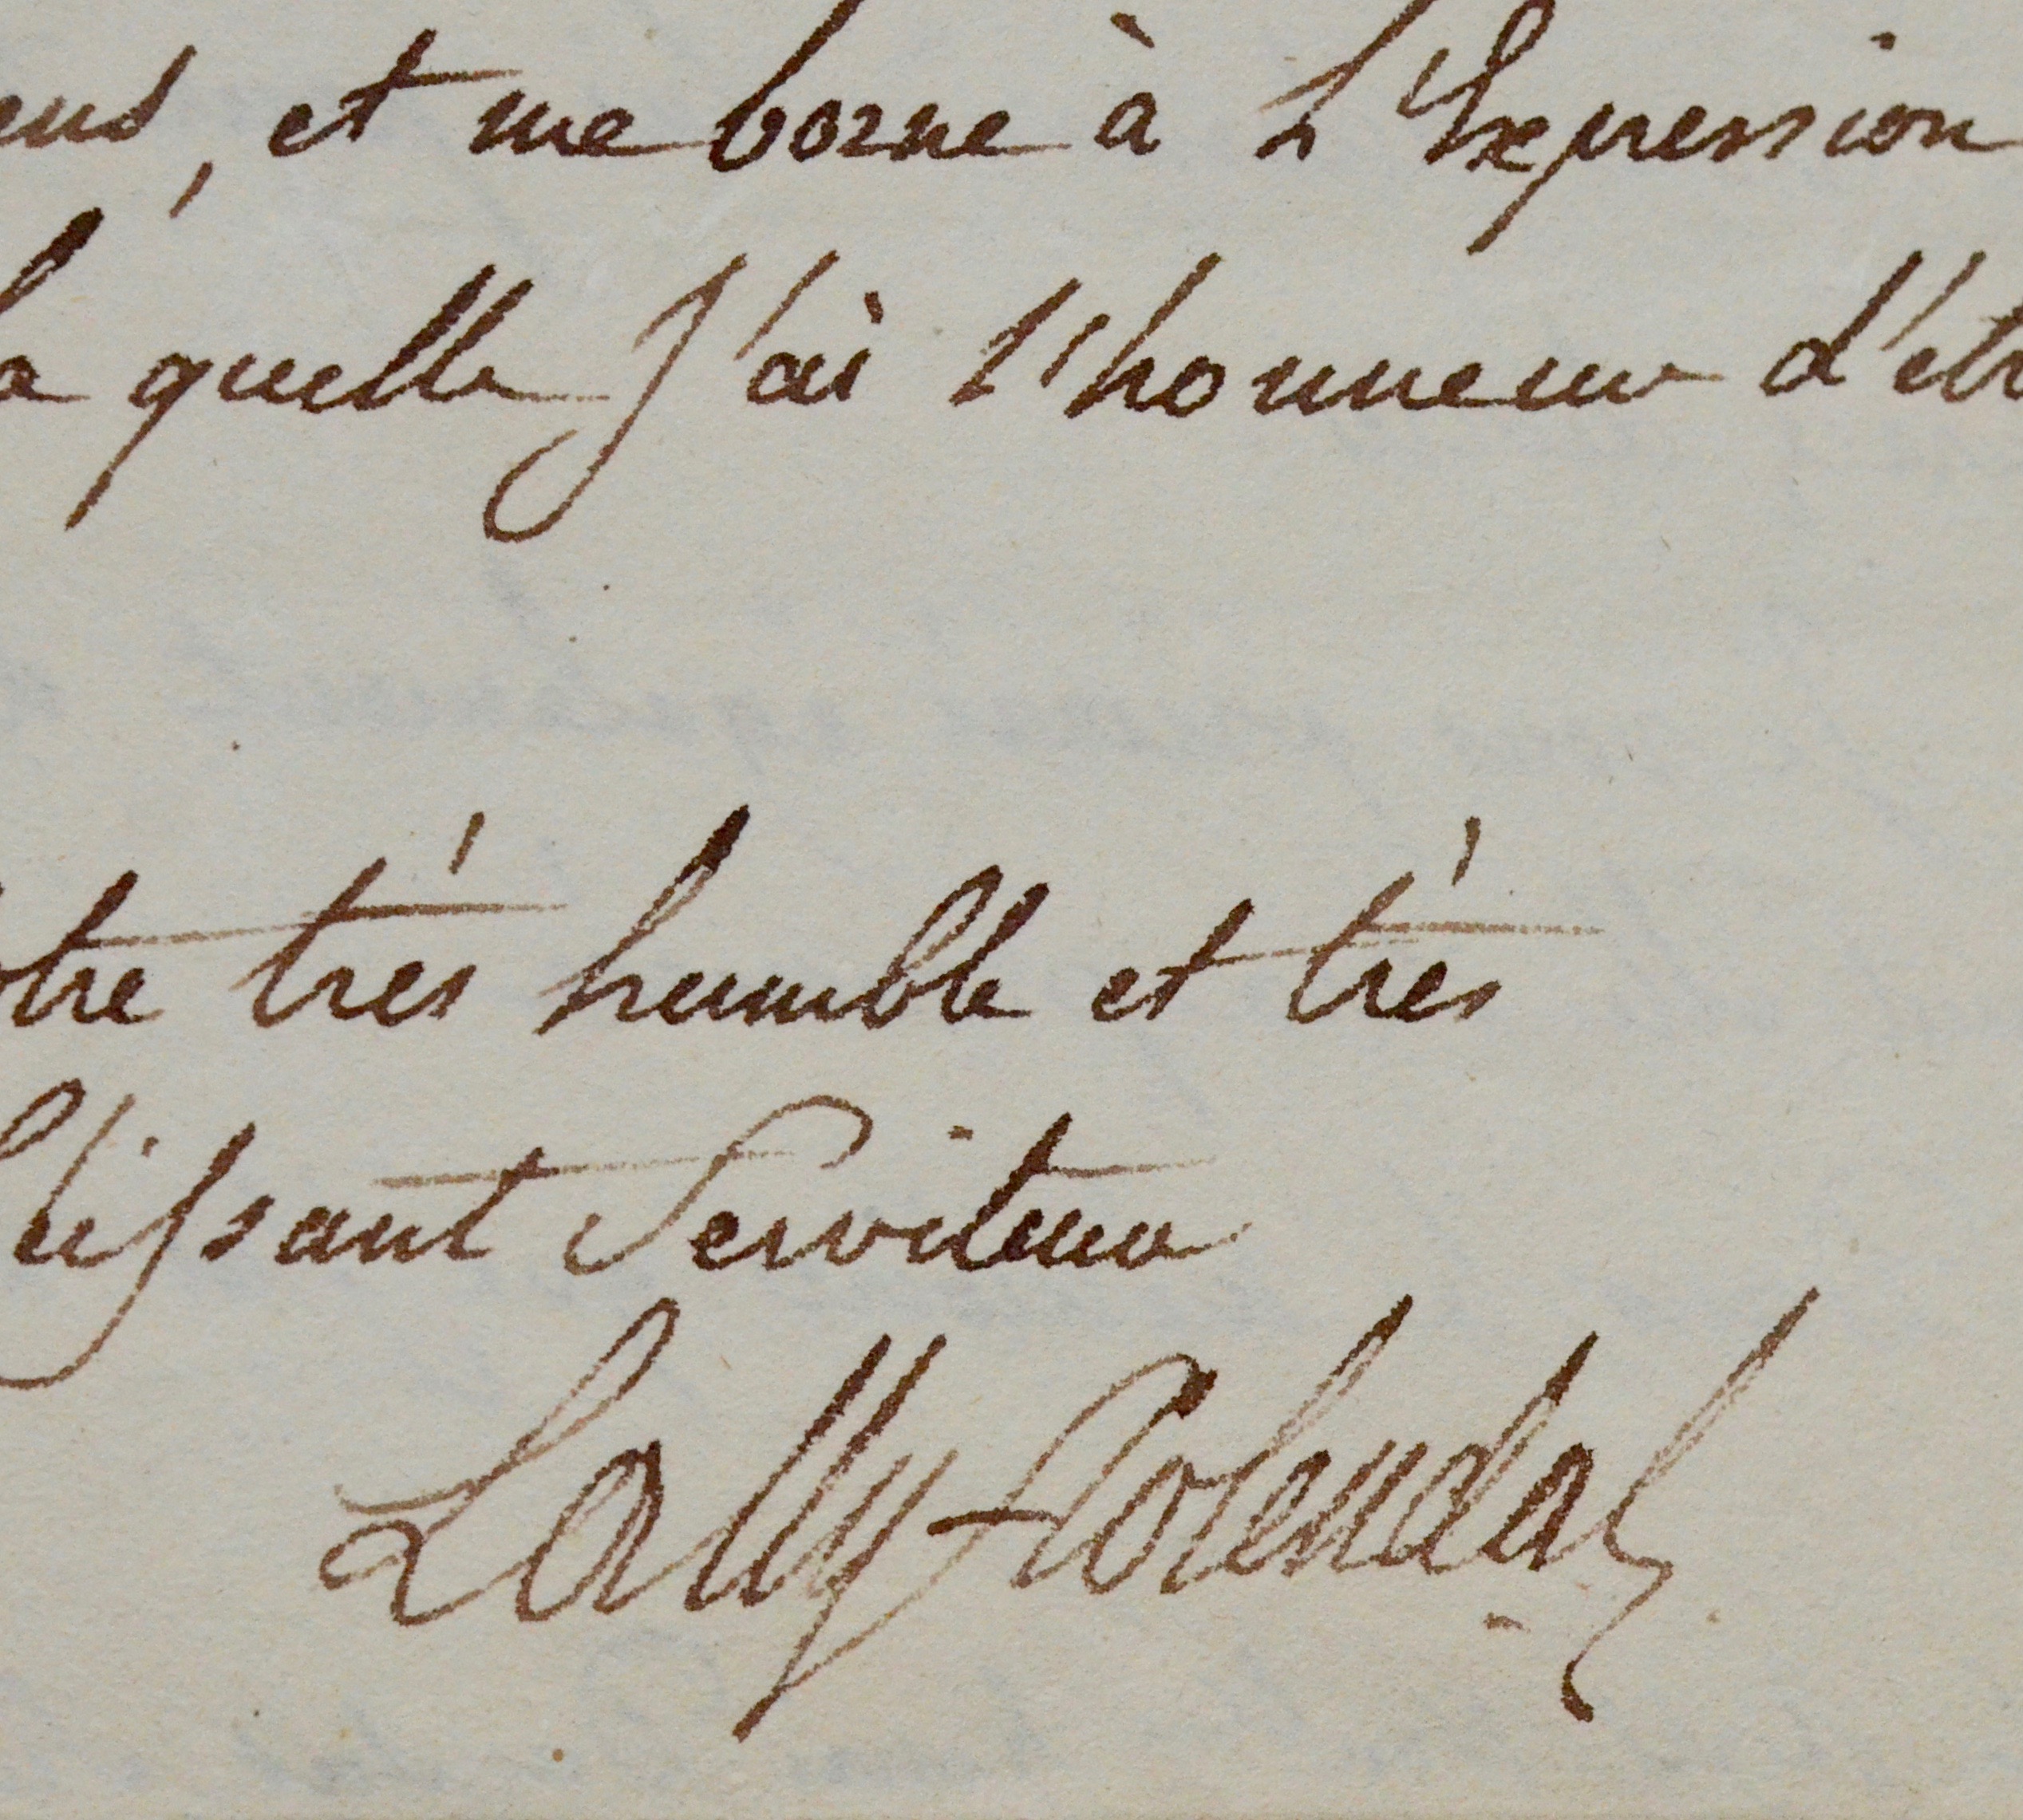 ens, et me borne à L'Expression
la quelle J'ai l'honneur d'etr
otre très humble et très
béissant Serviteur
Lally-Tolendal